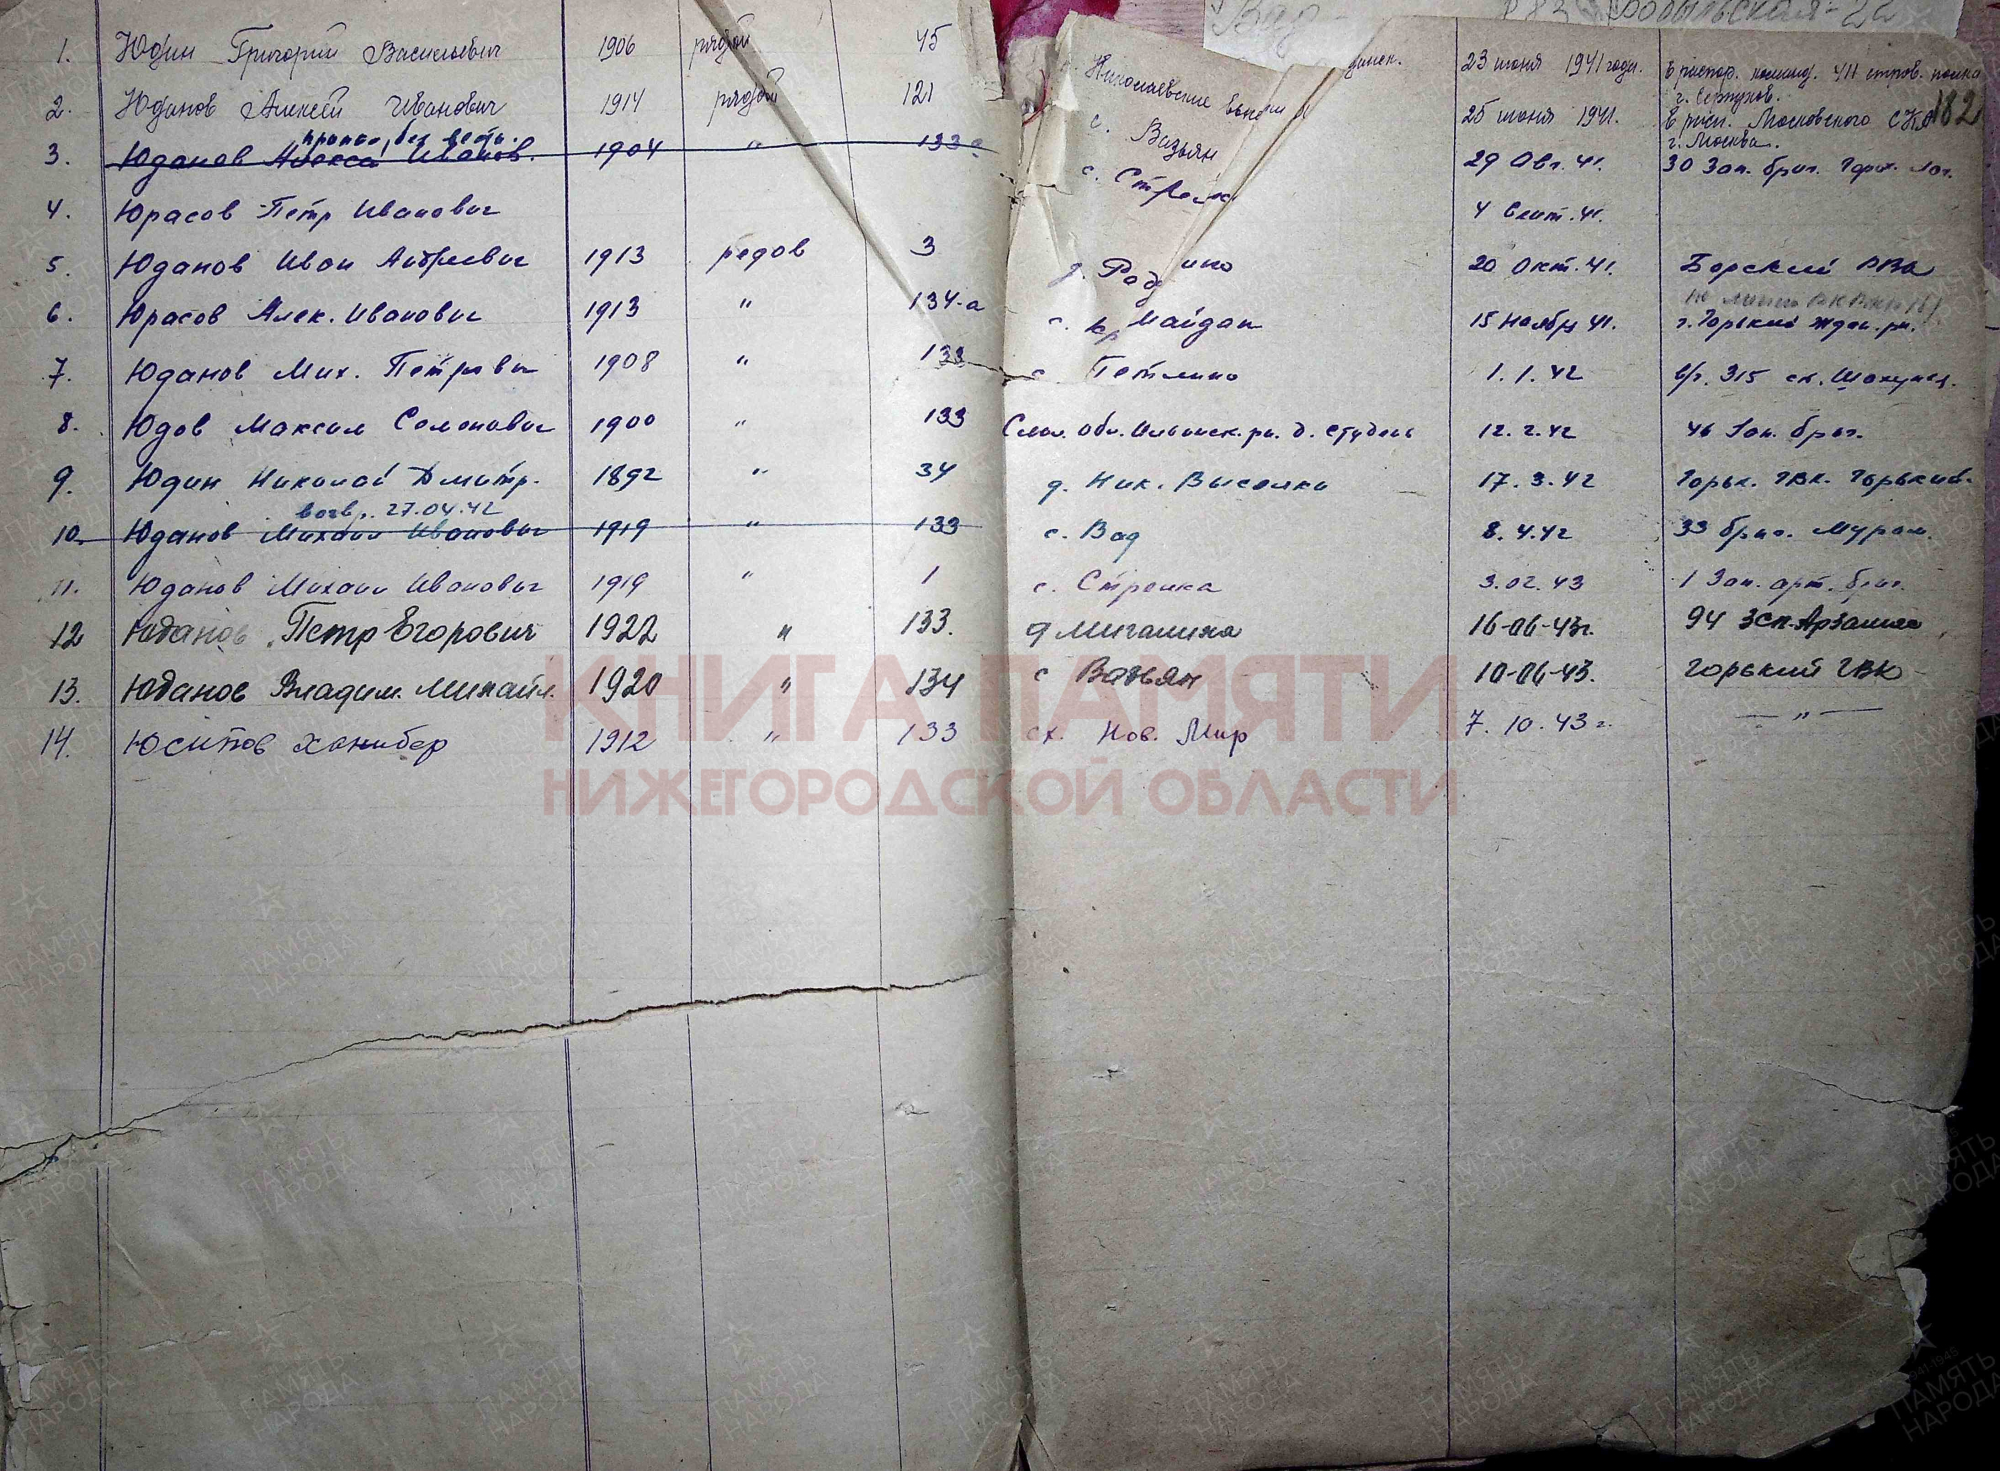 Вад
1. Юдин Григорий Васильевич 1906 рядой 45 с. Николаевские 23 июня 1941 года. в распор. команд. 411 стров. полка
г. Серпухов.
2. Юданов Алексей Иванович 1914 рядой 121 с. Вазьян 25 июня 1941. в расп. Московского 182
г. Москва.
пропал без вести.
3. Юданов Алексей Иванов. 1904 " 133 с. 29 Авг. 41. 30 Зап. бриг. Горох. лаг.
4. Юрасов Петр Иванович 4 Сент. 41.
5. Юданов Иван Андреевич 1913 редов 3 20 Окт. 41. Борский РВК
6. Юрасов Алек. Иванович 1913 " 134-а с. Кр Майдан 15 Ноябр 41. г. Горький Ждан. рн.
7. Юданов Мих. Петрович 1908 " 133 с Петлино 1.1.42 в/ч. 315 ст.
8. Юдов Максим Семенович 1900 " 133 Смол. Обл. Ильинск. рн. д. Студень 12.2.42 46 Зап. бриг.
9. Юдин Николай Дмитр. 1892 " 34 д. Ник. Выселки 17.3.42 Горьк. ГВК. Горький.
возвр. 27.04.42
10. Юданов Михаил Иванович 1919 " 133 с. Вад 8.4.42 33 бриг. Муром.
11. Юданов Михаил Иванович 1919 " 1 с. Стрелка 3.02.43 1 Зап. арт. бриг.
12 Юданов Петр Егорович 1922 " 133. д Мигалиха 16-06-43г. 94 ЗСП. Арзамас
13. Юданов Владим. Михайл. 1920 " 134 с Вазьян 10-06-43. Горький ГВК
14. Юсипов 1912 " 133 сх. Нов. Мир 7.10.43г. — " —
КНИГА ПАМЯТИ
НИЖЕГОРОДСКОЙ ОБЛАСТИ
ПАМЯТЬ
НАРОДА